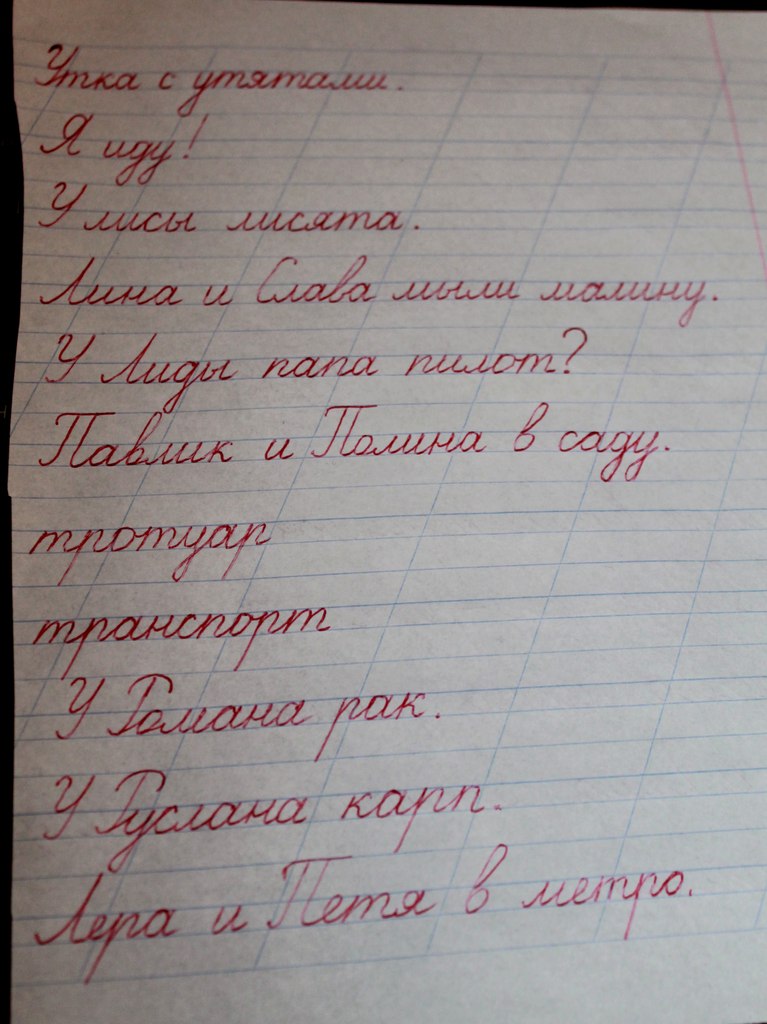 Утка с утятами.
Я иду!
У лисы лисята.
Лина и Слава мыли малину.
У Лиды папа пилот?
Павлик и Полина в саду.
тротуар
транспорт
У Романа рак.
У Руслана карп.
Лера и Петя в метро.